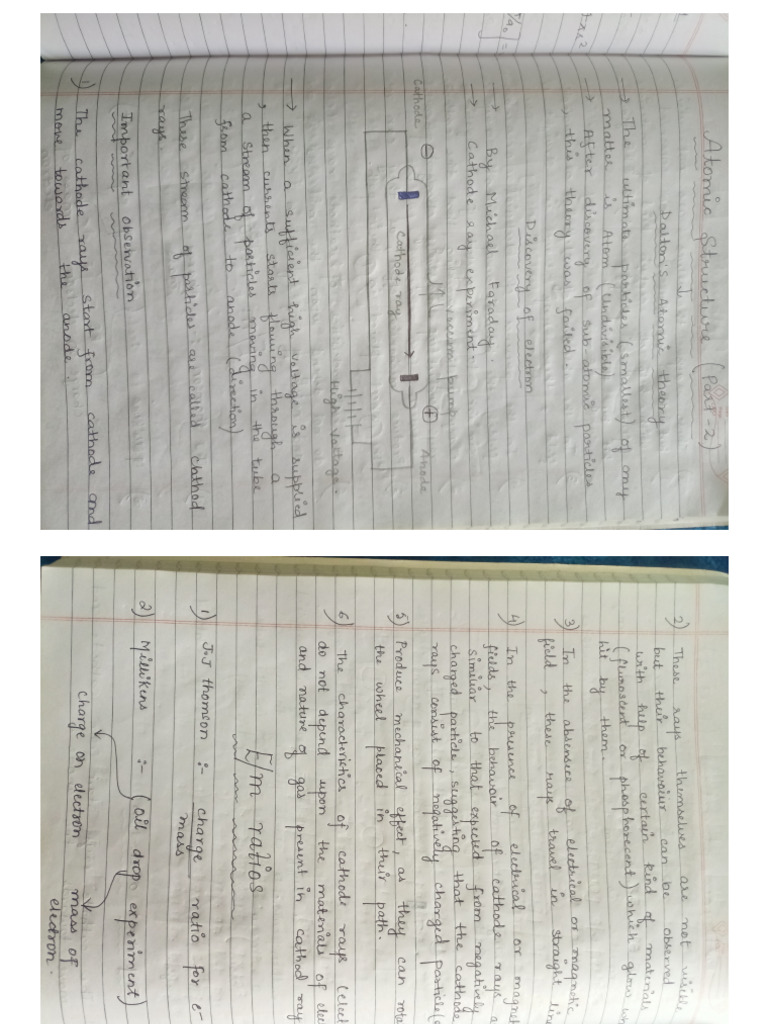 Atomic Structure (Part-2)
Dalton's Atomic theory
→ The ultimate particles (smallest) of any
matter is Atom (Undivisible)
→ After discovery of sub atomic particles
, this theory was failed.
Discovery of electron
→ By Michael Faraday.
→ Cathode ray experiment.
vaccum pump
Cathode
⊖
Cathode ray
⊕
Anode
High voltage.
→ When a sufficient high voltage is supplied
, then currents starts flowing through a
a stream of particles moving in the tube
from cathode to anode (direction)
These stream of particles are called chthod
rays.
Important observation
1) The cathode rays start from cathode and
move towards the anode.
2) These rays themselves are not visible
but their behavoiur can be observed
with help of certain kind of materials
(fluroscent or phosphorecent) which glow wh
hit by them.
3) In the absensce of electrical or magnetic
field, these rays travel in straight line
4) In the presence of electrical or magnet
fields, the behavoir of cathode rays a
similiar to that expected from negatively
charged particle, suggesting that the cathode
rays consist of negatively charged particle(e
5) Produce mechanical effect, as they can rota
the wheel placed in their path.
6) The characteristics of cathode rays (elect
do not depend upon the materials of elec
and nature of gas present in cathod ray
E/m ratios
1) J.J thomson :- charge ratio for e-
mass
2) Millikins :- (oil drop experiment)
charge on electron
mass of
electron.